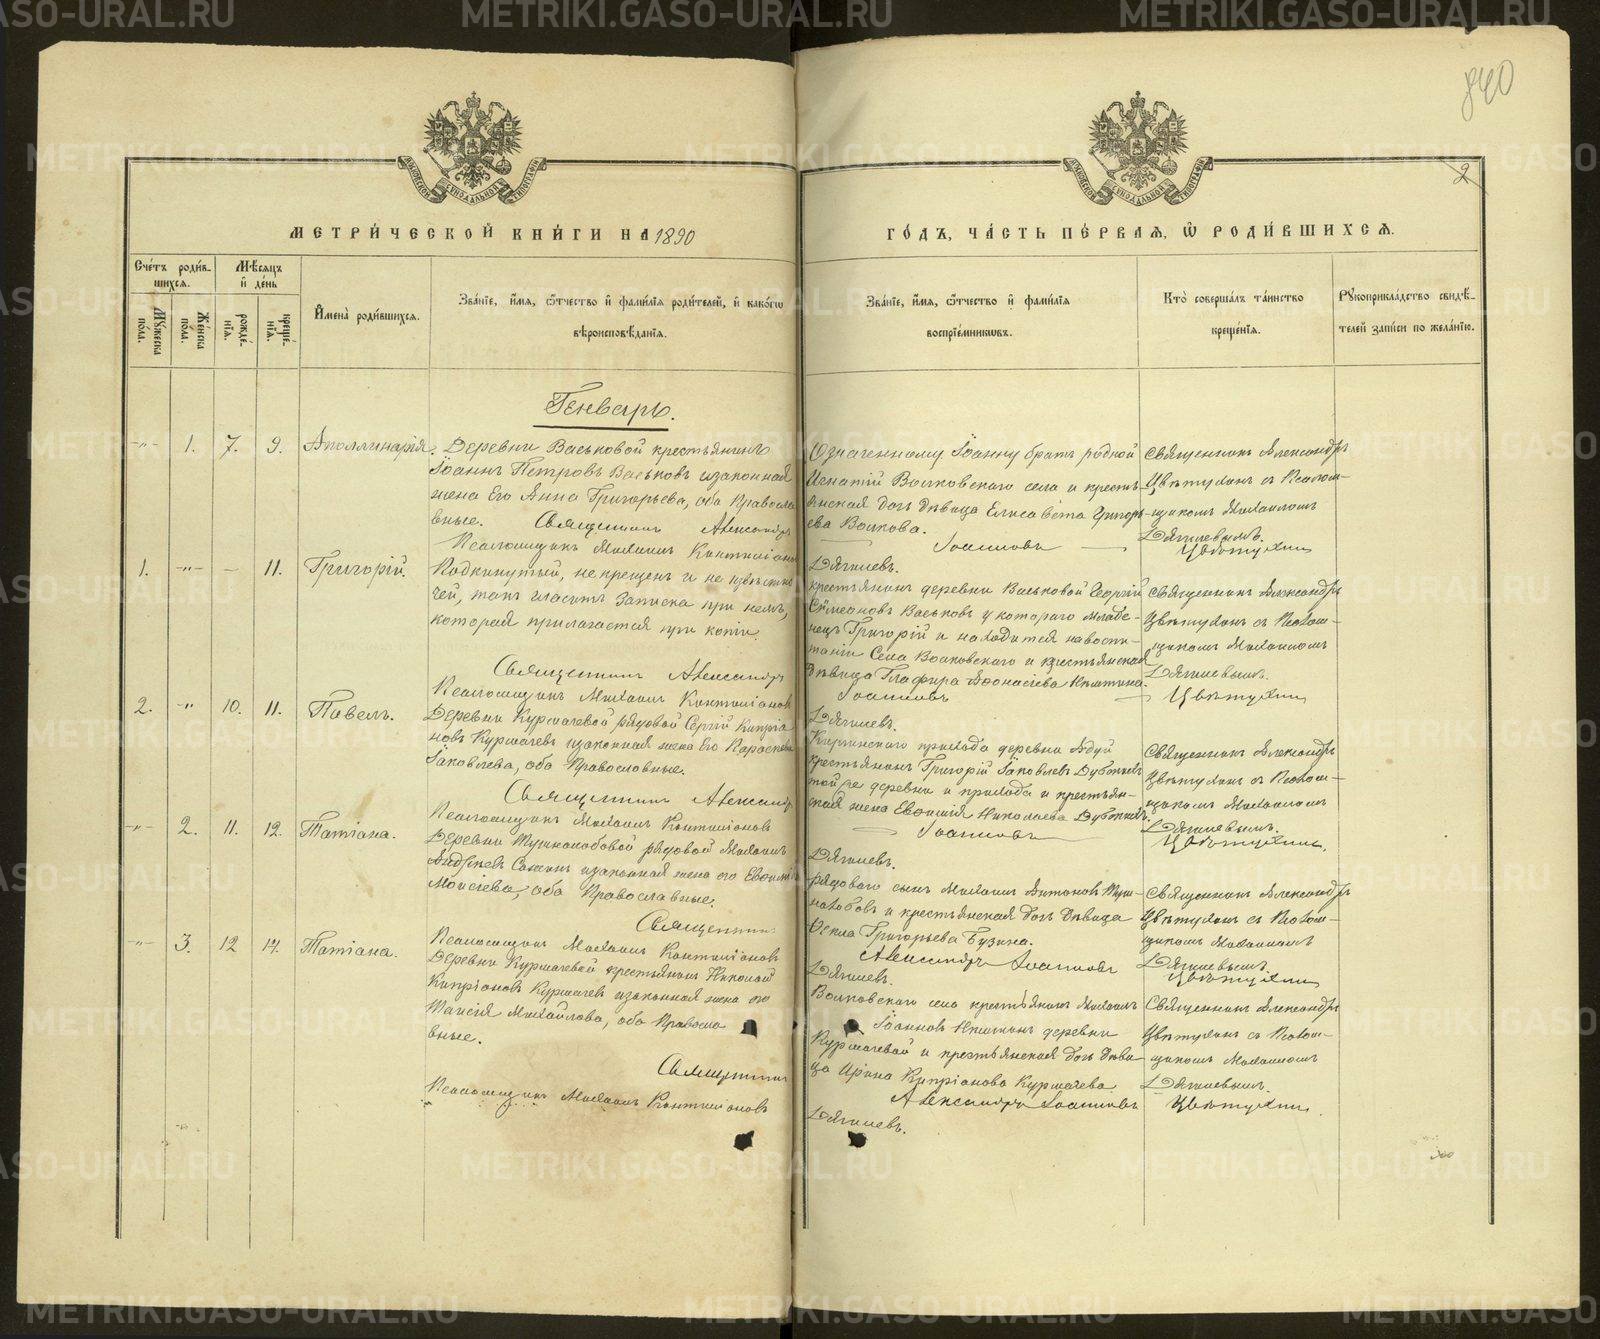 840
2
МОСКОВСКОЙ СѴНОДАЛЬНОЙ ТИПОГРАФІИ
МОСКОВСКОЙ СѴНОДАЛЬНОЙ ТИПОГРАФІИ
МЕТРИ́ЧЕСКОЙ КНИ́ГИ НА 1890
ГО́ДЪ, ЧА́СТЬ ПЕ́РВАѦ, Ѡ РОДИ́ВШИХСѦ.
Сче́тъ роди́в-
шихсѧ.
Мѣ́сѧцъ
и҆ де́нь
Мꙋ́жеска
по́ла.
Же́нска
по́ла.
рожде́-
нїѧ.
креще́-
нїѧ.
И҆мена̀ роди́вшихсѧ.
Зва́нїе, и҆́мѧ, ѻ҆́тчество и҆ фами́лїѧ роди́телей, и҆ како́гѡ
вѣроисповѣ́данїѧ.
Зва́нїе, и҆́мѧ, ѻ҆́тчество и҆ фами́лїѧ
воспрїе́мникѡвъ.
Кто̀ соверша́лъ та́инство
креще́нїѧ.
Рꙋкоприкла́дство свидѣ́-
телей за́писи по жела́нїю.
Генварь.
-„- 1. 7. 9. Аполлинарія.
Деревни Васьковой крестьянинъ
Іоаннъ Петровъ Васьковъ и законная
жена Его Анна Григорьева, оба Правосла
вные. Священникъ Александръ
Псаломщикъ Михаилъ
Означенному Іоанну братъ родной
Игнатій Волковскаго села и кресть-
янская дочь дѣвица Елисавета Григорь-
ева Волкова.
Іоанновъ
Дягилевъ.
Священникъ Александръ
Цвѣтухинъ съ Псалом-
щикомъ Михаиломъ
Дягилевымъ.
Цвѣтухинъ
1. -„- - 11. Григорій.
Подкинутый, не крещенъ и не извѣстно
чей, такъ гласитъ Записка при немъ,
которая прилагается при копіи.
Священникъ Александръ
Псаломщикъ Михаилъ
крестьянинъ деревни Васьковой Георгій
Сѵмеоновъ Васьковъ у котораго младе-
нецъ Григорій и находится на воспи-
таніи Села Волковскаго и крестьянская
дѣвица Глафира Аѳонасіева
Іоанновъ
Дягилевъ.
Священникъ Александръ
Цвѣтухинъ съ Псалом-
щикомъ Михаиломъ
Дягилевымъ.
Цвѣтухинъ
2. -„- 10. 11. Павелъ.
Деревни Курмачевой рядовой Сергій Кипріа
новъ Курмачевъ и законная жена Его Параскева
Іаковлева, оба Православные.
Священникъ Александръ
Псаломщикъ Михаилъ
прихода деревни
крестьянинъ Григорій Іаковлевъ
той же деревни и прихода и крестьян-
ская жена Евѳимія Николаева
Іоанновъ
Дягилевъ.
Священникъ Александръ
Цвѣтухинъ съ Псалом-
щикомъ Михаиломъ
Дягилевымъ.
Цвѣтухинъ.
-„- 2. 11. 12. Татіана.
Деревни рядовой Михаилъ
Андреевъ и законная жена его
Моисіева, оба Православные.
Священникъ
Псаломщикъ Михаилъ
рядоваго сынъ Михаилъ Антоновъ
и крестьянская дочь дѣвица
Ѳекла Григорьева Бузина.
Александръ Іоанновъ
Дягилевъ.
Священникъ Александръ
Цвѣтухинъ съ Псалом-
щикомъ Михаиломъ
Дягилевымъ.
Цвѣтухинъ
-„- 3. 12 14. Татіана.
Деревни Курмачевой крестьянинъ Николай
Кипріановъ Курмачевъ и законная жена его
Таисія Михайлова, оба Правосла
вные.
Священникъ
Псаломщикъ Михаилъ
Волковскаго села крестьянинъ Михаилъ
Іоанновъ деревни
Курмачевой и крестьянская дочь дѣви
ца Ирина Кипріанова Курмачева
Александръ Іоанновъ
Дягилевъ.
Священникъ Александръ
Цвѣтухинъ съ Псалом-
щикомъ Михаиломъ
Дягилевымъ.
Цвѣтухинъ.
METRIKI.GASO-URAL.RU